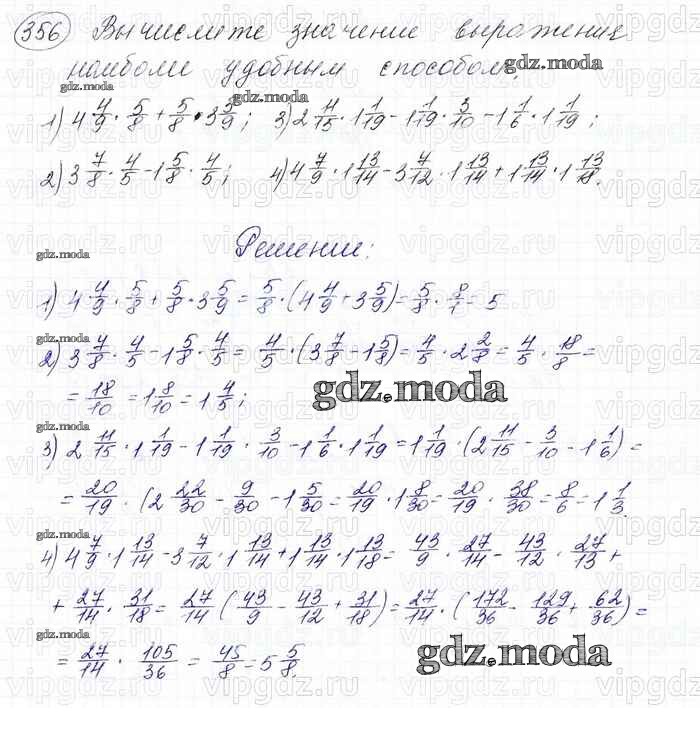 356 Вычислите значение выражения
наиболи удобным способом.
1) 4 4/9 · 5/8 + 5/8 · 3 5/9; 3) 2 11/15 · 1 1/19 - 1 1/19 · 3/10 - 1 1/6 · 1 1/19;
2) 3 7/8 · 4/5 - 1 5/8 · 4/5; 4) 4 7/9 · 1 13/14 - 3 7/12 · 1 13/14 + 1 13/14 · 1 13/18.
Решение:
1) 4 4/9 · 5/8 + 5/8 · 3 5/9 = 5/8 · (4 4/9 + 3 5/9) = 5/8 · 8/1 = 5
2) 3 7/8 · 4/5 - 1 5/8 · 4/5 = 4/5 · (3 7/8 - 1 5/8) = 4/5 · 2 2/8 = 4/5 · 18/8 =
= 18/10 = 1 8/10 = 1 4/5;
3) 2 11/15 · 1 1/19 - 1 1/19 · 3/10 - 1 1/6 · 1 1/19 = 1 1/19 · (2 11/15 - 3/10 - 1 1/6) =
= 20/19 · (2 22/30 - 9/30 - 1 5/30 = 20/19 · 1 8/30 = 20/19 · 38/30 = 8/6 = 1 1/3.
4) 4 7/9 · 1 13/14 - 3 7/12 · 1 13/14 + 1 13/14 · 1 13/18 = 43/9 · 27/14 - 43/12 · 27/13 +
+ 27/14 · 31/18 = 27/14 (43/9 - 43/12 + 31/18) = 27/14 · (172/36 - 129/36 + 62/36) =
= 27/14 · 105/36 = 45/8 = 5 5/8.
gdz.moda
vipgdz.ru